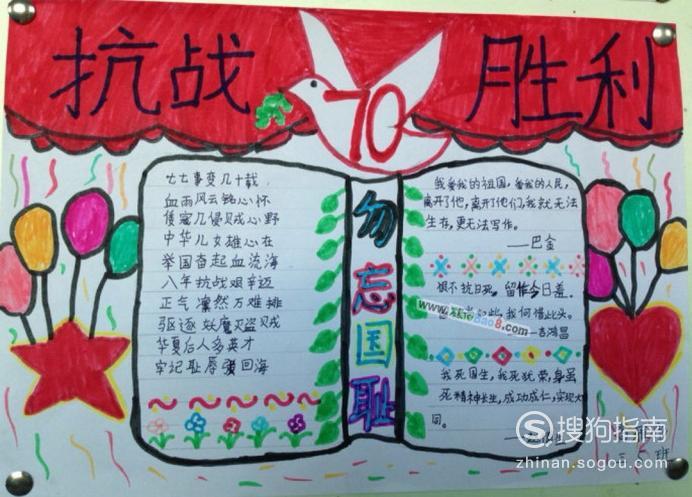 抗战
70
胜利
七七事变几十载
血雨风云铭心怀
倭寇几侵贼心野
中华儿女雄心在
举国奋起血流海
八年抗战艰辛迈
正气凛然万难排
驱逐妖魔灭盗贼
华夏后人多英才
牢记耻辱爱回海
勿忘国耻
我爱我的祖国，爱我的人民，
离开了他，离开了他们，我就无法
生存，更无法写作。
——巴金
恨不抗日死，留作今日羞。
我何惜此头。
——吉鸿昌
我死国生，我死犹荣，身虽
死精神长生，成功成仁，实现大
同。
班
搜狗指南
zhinan.sogou.com